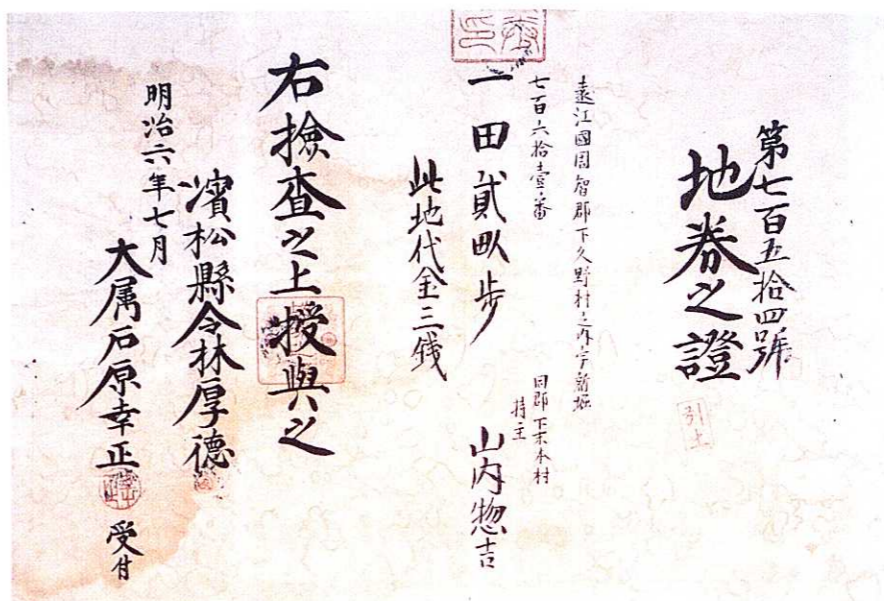 第七百五拾四號
地券之證
引土
遠江國周智郡下久野村之内字新堀
七百六拾壹番
一田貳畝歩
同郡下末本村
持主
山内惣吉
此地代金三錢
右撿査之上授與之
濱松縣令林厚德
明治六年七月
大属石原幸正
受付